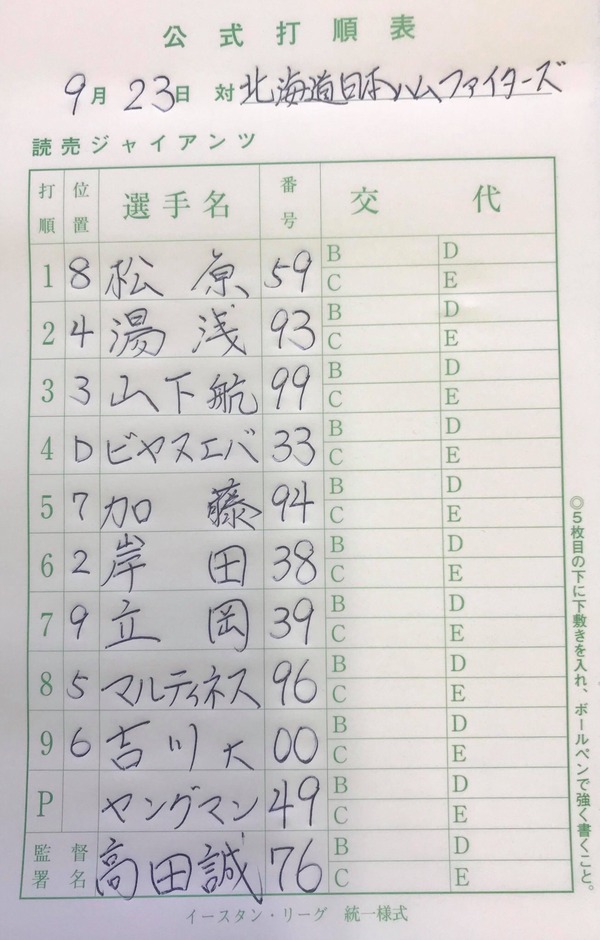 公式打順表
9月23日 対 北海道日本ハムファイターズ
読売ジャイアンツ
打順 位置 選手名 番号 交代
1 8 松原 59 B D C E
2 4 湯浅 93 B D C E
3 3 山下航 99 B D C E
4 D ビヤヌエバ 33 B D C E
5 7 加藤 94 B D C E
6 2 岸田 38 B D C E
7 9 立岡 39 B D C E
8 5 マルティネス 96 B D C E
9 6 吉川大 00 B D C E
P ヤングマン 49 B D C E
監督署名 高田誠 76 B D C E
イースタン・リーグ 統一様式
◎5枚目の下に下敷きを入れ、ボールペンで強く書くこと。